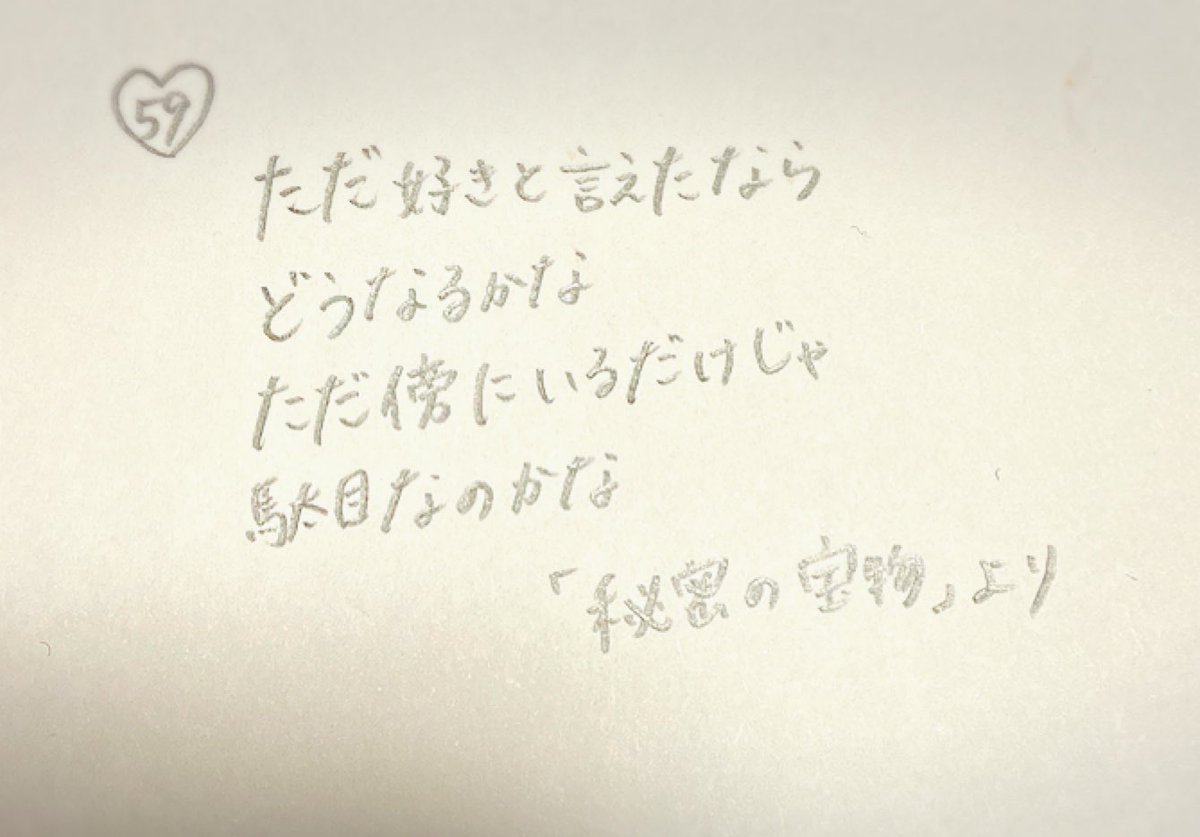 59
ただ好きと言えたなら
どうなるかな
ただ傍にいるだけじゃ
駄目なのかな
「秘密の宝物」より